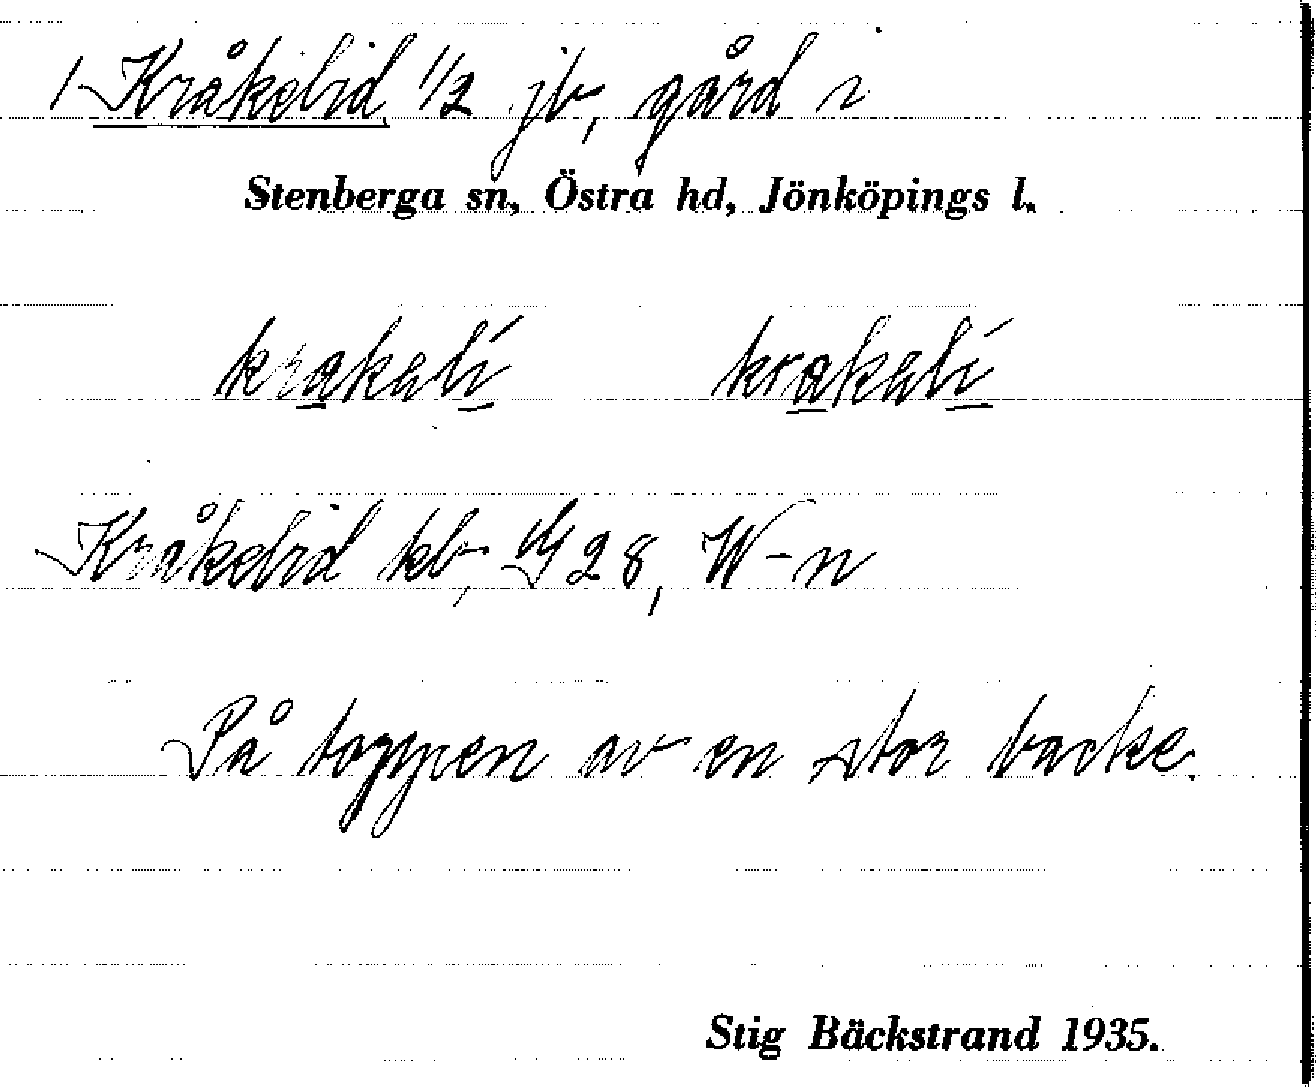 1 Kråkelid, 1/2 jb, gård i
Stenberga sn, Östra hd, Jönköpings l.
krakali krakali
Kråkelid kb, 28, W-n
På toppen av en stor backe.
Stig Bäckstrand 1935.